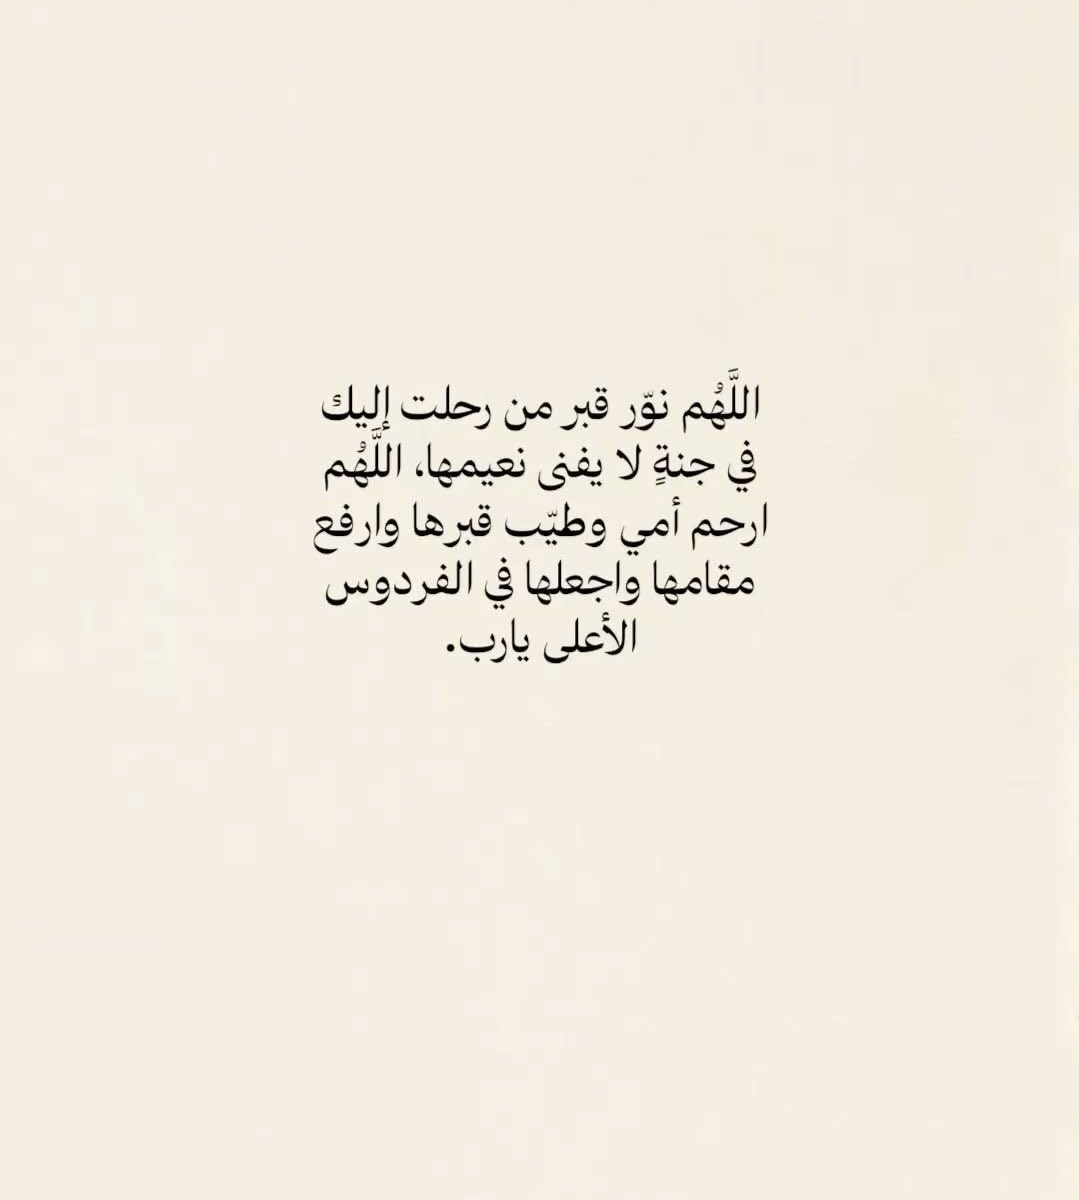 اللَّهُم نوّر قبر من رحلت إليك
في جنةٍ لا يفنى نعيمها، اللَّهُم
ارحم أمي وطيّب قبرها وارفع
مقامها واجعلها في الفردوس
الأعلى يارب.